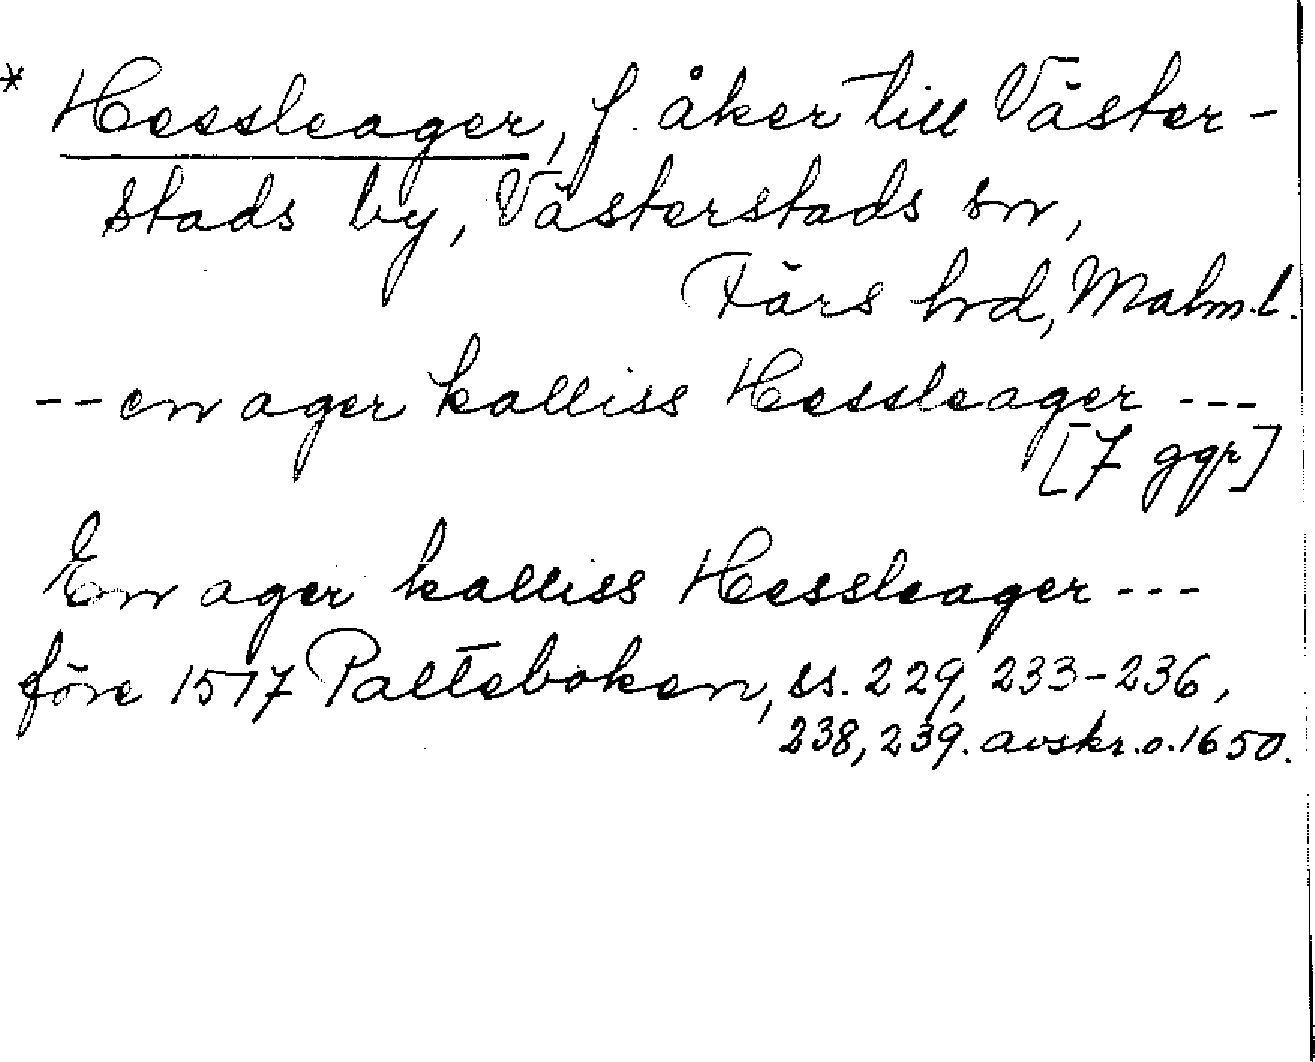 * Hessleager, f. åker till Väster-
stads by, Västerstads sn,
Färs hrd, Malm.l.
-- en ager kalliss Hessleager ---
[7 ggr]
En ager kalliss Hessleager ---
före 1517 Palteboken, ss. 229, 233-236,
238, 239. avskr. o. 1650.